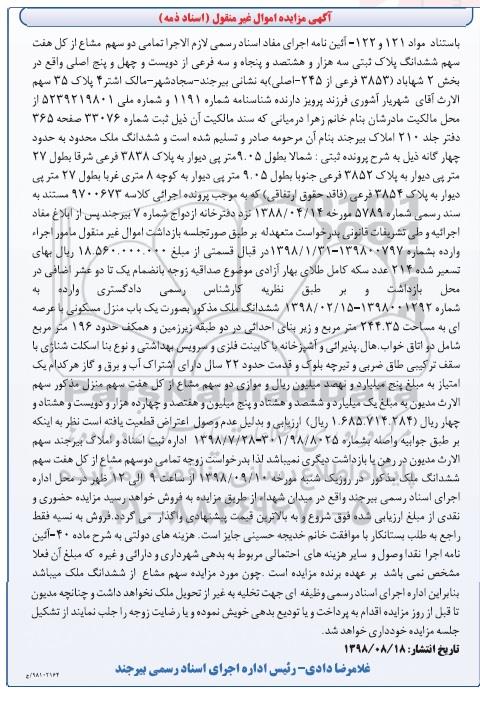 آگهی مزایده اموال غیر منقول (اسناد ذمه)
باستناد مواد ۱۲۱ و ۱۲۲- آئین نامه اجرای مفاد اسناد رسمی لازم الاجرا تمامی دو سهم مشاع از کل هفت
سهم ششدانگ پلاک ثبتی سه هزار و هشتصد و پنجاه و سه فرعی از دویست و چهل و پنج اصلی واقع در
بخش ۲ شهاباد (۳۸۵۳ فرعی از ۲۴۵-اصلی)به نشانی بیرجند-سجادشهر-مالک اشتر۴ پلاک ۳۵ سهم
الارث آقای شهریار آشوری فرزند پرویز دارنده شناسنامه شماره ۱۱۹۱ و شماره ملی ۵۲۳۹۲۱۹۸۰۱ از
محل مالکیت مادرشان بنام خانم زهرا درمیانی که سند مالکیت آن ذیل ثبت شماره ۳۳۰۷۶ صفحه ۳۶۵
دفتر جلد ۲۱۰ املاک بیرجند بنام آن مرحومه صادر و تسلیم شده است و ششدانگ ملک محدود به حدود
چهار گانه ذیل به شرح پرونده ثبتی : شمالا بطول ۹.۰۵متر پی دیوار به پلاک ۳۸۳۸ فرعی شرقا بطول ۲۷
متر پی دیوار به پلاک ۳۸۵۲ فرعی جنوبا بطول ۹.۰۵ متر پی دیوار به کوچه ۸ متری غربا بطول ۲۷ متر پی
دیوار به پلاک ۳۸۵۴ فرعی (فاقد حقوق ارتفاقی) که به موجب پرونده اجرائی کلاسه ۹۷۰۰۶۷۳ مستند به
سند رسمی شماره ۵۷۸۹ مورخه ۱۳۸۸/۰۴/۱۴ نزد دفترخانه ازدواج شماره ۷ بیرجند پس از ابلاغ مفاد
اجرائیه و طی تشریفات قانونی بدرخواست متعهدله بر طبق صورتجلسه بازداشت اموال غیر منقول مامور اجراء
وارده بشماره ۱۳۹۸۰۰۷۹۷-۱۳۹۸/۱/۳۱در قبال قسمتی از مبلغ ۱۸.۵۶۰.۰۰۰.۰۰۰ ریال بهای
تسعیر شده ۲۱۴ عدد سکه کامل طلای بهار آزادی موضوع صداقیه زوجه بانضمام یک تا دو عشر اضافی در
محل بازداشت و بر طبق نظریه کارشناس رسمی دادگستری وارده به
شماره ۱۳۹۸۰۰۱۲۹۲-۱۳۹۸/۰۲/۱۵ ششدانگ ملک مذکور بصورت یک باب منزل مسکونی با عرصه
ای به مساحت ۲۴۴.۳۵ متر مربع و زیر بنای احداثی در دو طبقه زیرزمین و همکف حدود ۱۹۶ متر مربع
شامل دو اتاق خواب.هال.پذیرائی و آشپزخانه با کابینت فلزی و سرویس بهداشتی و نوع بنا اسکلت شناژی با
سقف ترکیبی طاق ضربی و تیرچه بلوک و قدمت حدود ۲۲ سال دارای اشتراک آب و برق و گاز هرکدام یک
امتیاز به مبلغ پنج میلیارد و نهصد میلیون ریال و موازی دو سهم مشاع از کل هفت سهم منزل مذکور سهم
الارث مدیون به مبلغ یک میلیارد و ششصد و هشتاد و پنج میلیون و هفتصد و چهارده هزار و دویست و هشتاد و
چهار ریال (۱.۶۸۵.۷۱۴.۲۸۴ ریال) ارزیابی و بدلیل عدم وصول اعتراض قطعیت یافته است نظر به اینکه
بر طبق جوابیه واصله بشماره ۳۰۱/۹۸/۸۰۲۵-۱۳۹۸/۷/۲۸ اداره ثبت اسناد و املاک بیرجند سهم
الارث مدیون در رهن یا بازداشت دیگری نمیباشد لذا بدرخواست زوجه تمامی دوسهم مشاع از کل هفت سهم
ششدانگ ملک مذکور در روزیک شنبه مورخه ۱۳۹۸/۰۹/۱۰ از ساعت ۹ الی ۱۲ ظهر در محل اداره
اجرای اسناد رسمی بیرجند واقع در میدان شهداء از طریق مزایده به فروش خواهد رسید مزایده حضوری و
نقدی از مبلغ ارزیابی شده فوق شروع و به بالاترین قیمت پیشنهادی واگذار می گردد.فروش به نسیه فقط
راجع به طلب بستانکار با موافقت خانم خدیجه حسینی جایز است. هزینه های دولتی به شرح ماده ۴۰-آئین
نامه اجرا نقدا وصول و سایر هزینه های احتمالی مربوط به بدهی شهرداری و دارائی و غیره که مبلغ آن فعلا
مشخص نمی باشد بر عهده برنده مزایده است .چون مورد مزایده سهم مشاع از ششدانگ ملک میباشد
بنابراین اداره اجرای اسناد رسمی وظیفه ای جهت تخلیه به غیر از تحویل ملک نخواهد داشت و چنانچه مدیون
تا قبل از روز مزایده اقدام به پرداخت و یا تودیع بدهی خویش نموده و یا رضایت زوجه را جلب نمایند از تشکیل
جلسه مزایده خودداری خواهد شد.
تاریخ انتشار: ۱۳۹۸/۰۸/۱۸
غلامرضا دادی- رئیس اداره اجرای اسناد رسمی بیرجند
۹۸۱۰۲۱۶۴/ج